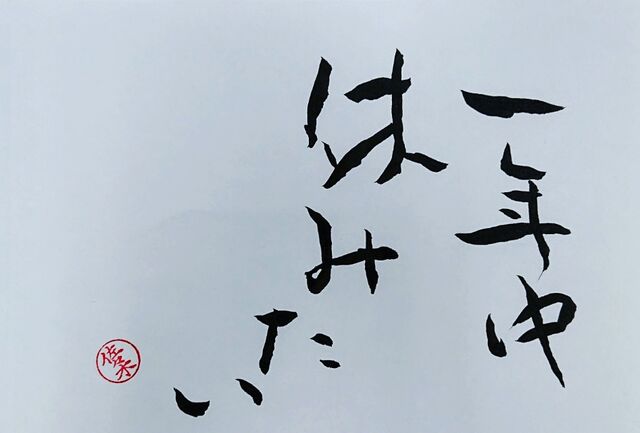 一年中
休みたい